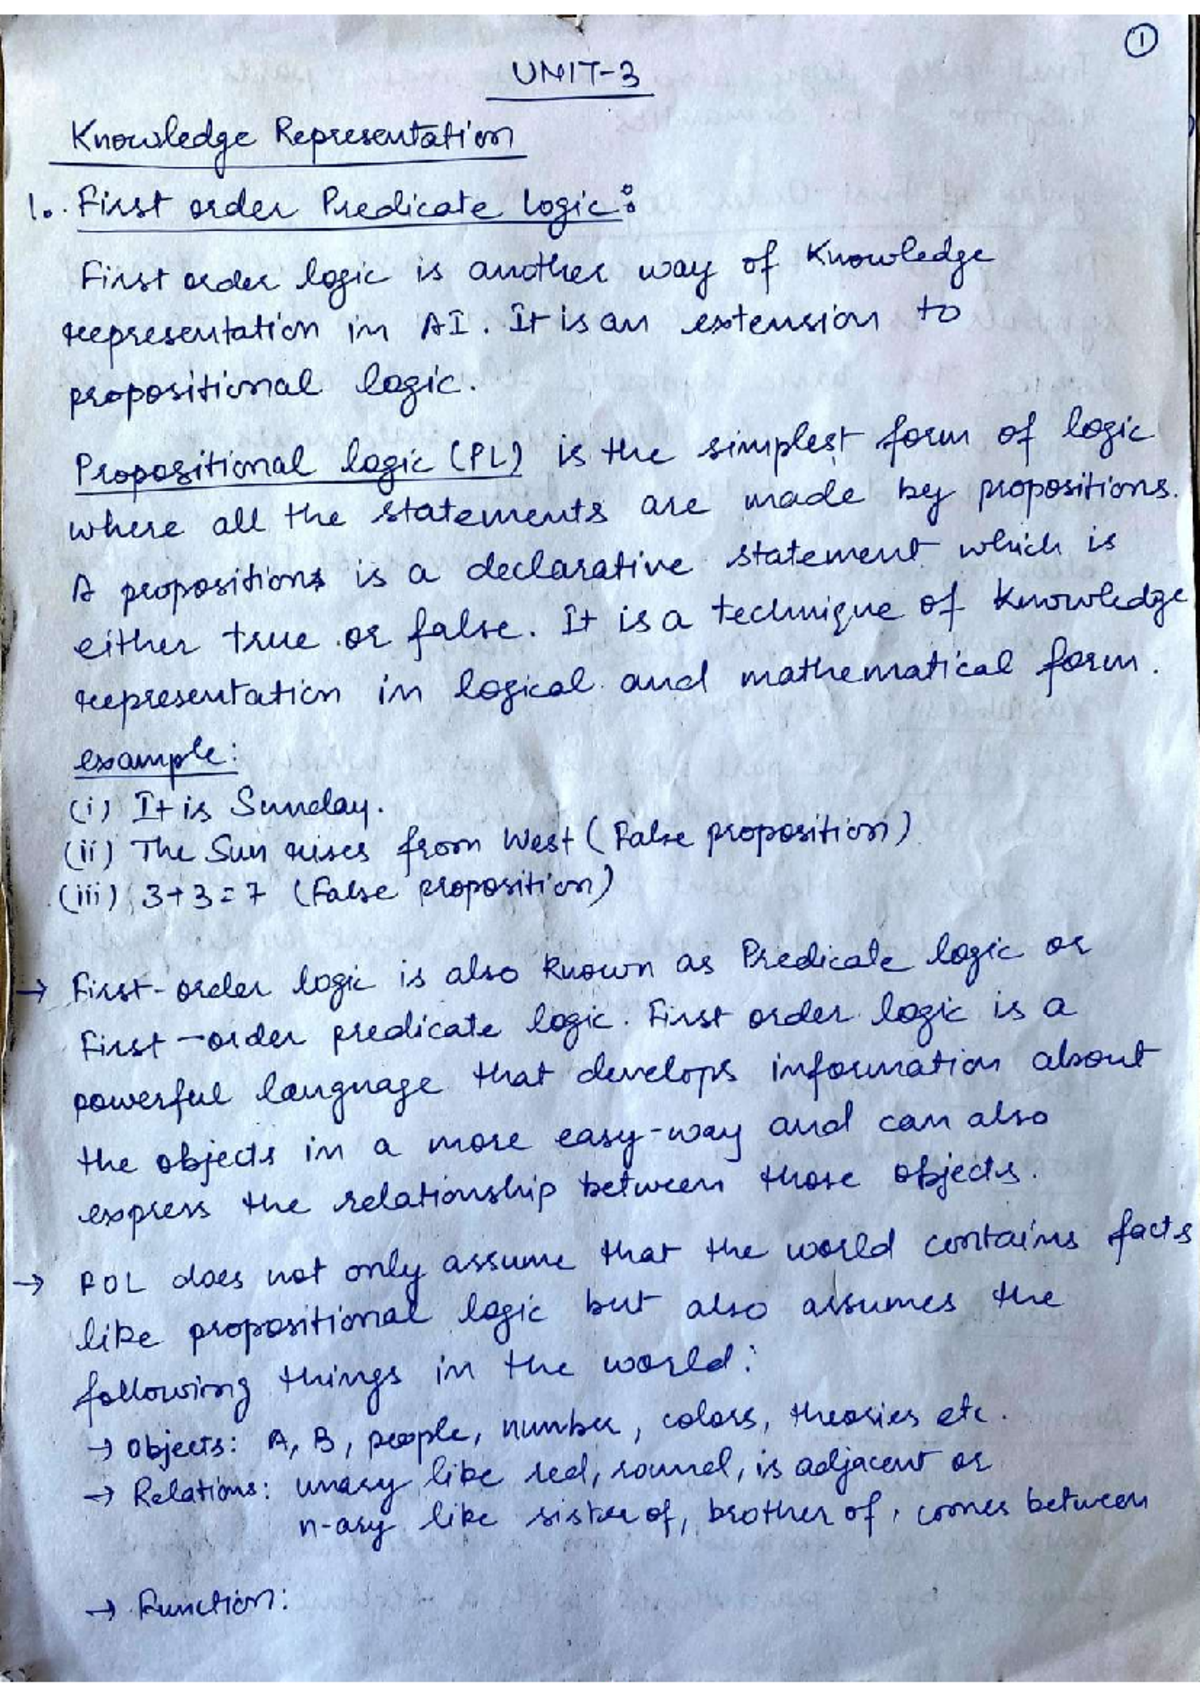 1
UNIT-3
Knowledge Representation
1. First order Predicate logic:
First order logic is another way of Knowledge
representation in AI. It is an extension to
propositional logic.
Propositional logic (PL) is the simplest form of logic
where all the statements are made by propositions.
A propositions is a declarative statement which is
either true or false. It is a technique of Knowledge
representation in logical and mathematical form.
example:
(i) It is Sunday.
(ii) The Sun rises from West (False proposition)
(iii) 3+3=7 (False proposition)
→ First-order logic is also known as Predicate logic or
First-order predicate logic. First order logic is a
powerful language that develops information about
the objects in a more easy-way and can also
express the relationship between those objects.
→ FOL does not only assume that the world contains facts
like propositional logic but also assumes the
following things in the world:
→ Objects: A, B, people, number, colors, theories etc.
→ Relations: unary like red, round, is adjacent or
n-ary like sister of, brother of, comes between
→ Function: